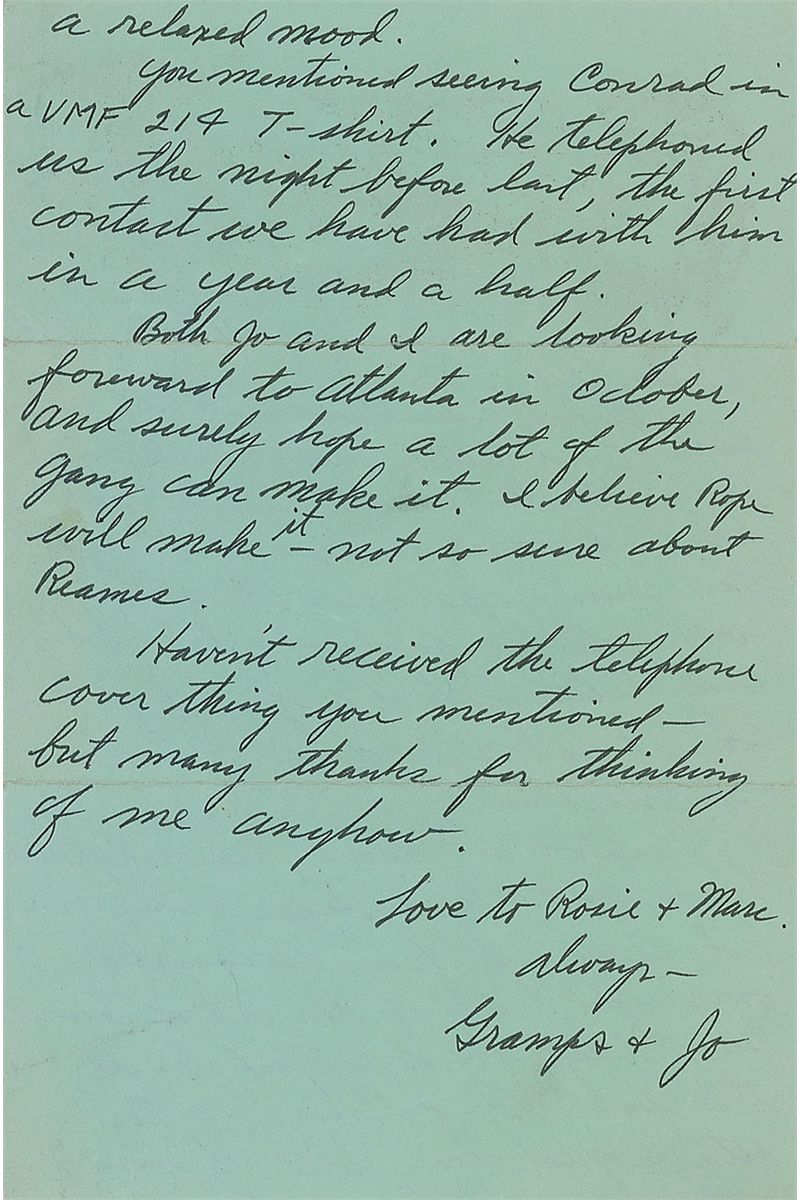 a relaxed mood.
You mentioned seeing Conrad in
a VMF 214 T-shirt. He telephoned
us the night before last, the first
contact we have had with him
in a year and a half.
Both Jo and I are looking
foreward to Atlanta in October,
and surely hope a lot of the
gang can make it. I believe Rope
will make it - not so sure about
Reames.
Haven't received the telephone
cover thing you mentioned -
but many thanks for thinking
of me anyhow.
Love to Rosie + Marc.
Always -
Gramps + Jo